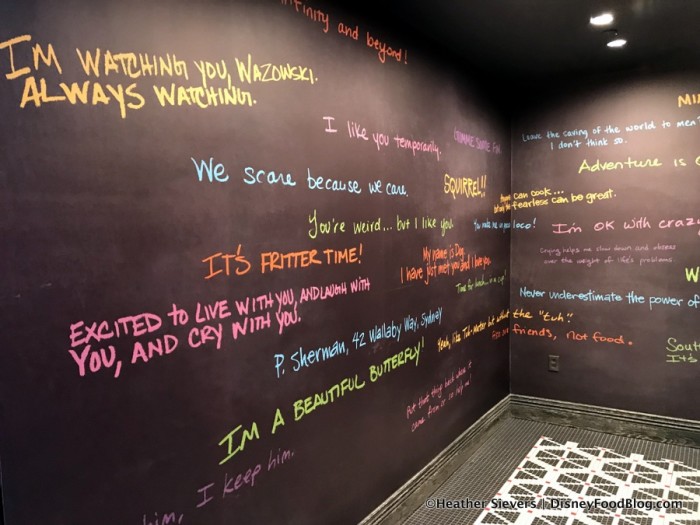 infinity and beyond!
I'M WATCHING YOU, WAZOWSKI.
ALWAYS WATCHING.
I like you temporarily.
GIMME SOME FIN.
We scare because we care.
SQUIRREL!!
You're weird... but I like you.
IT'S FRITTER TIME!
My name is Dug.
I have just met you and I love you.
EXCITED TO LIVE WITH YOU, AND LAUGH WITH
YOU, AND CRY WITH YOU.
P. Sherman, 42 Wallaby Way, Sydney
I'M A BEAUTIFUL BUTTERFLY!
him, I keep him.
Put that thing back where it
came from or so help me!
Leave the saving of the world to men?
I don't think so.
Adventure is
can cook...
the fearless can be great.
loco!
I'm OK with crazy
Crying helps me slow down and obsess
over the weight of life's problems
Never underestimate the power of
Yeah, like Tuh-Mater but without the "tuh".
friends, not food.
It's
©Heather Sievers | DisneyFoodBlog.com